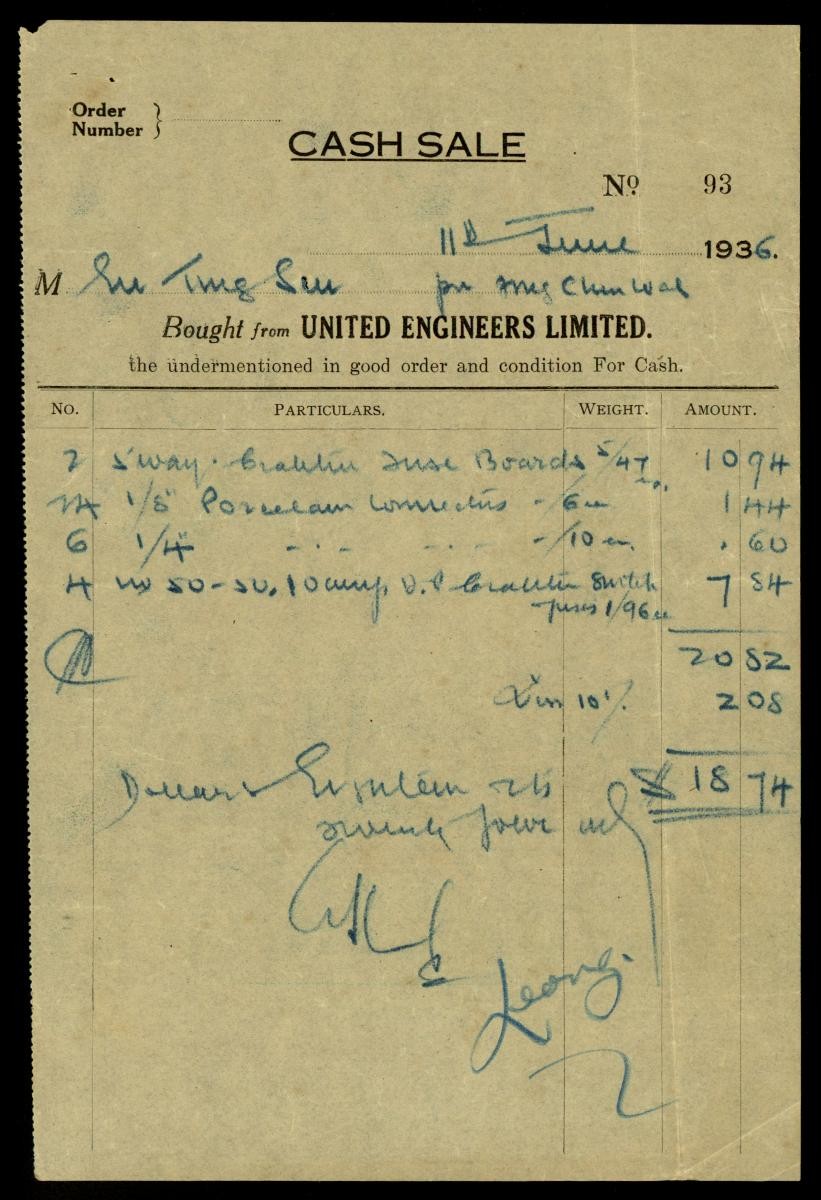 Order
Number
CASH SALE
No 93
11th June 1936.
M Eu Tong Sen per
Bought from UNITED ENGINEERS LIMITED.
the undermentioned in good order and condition For Cash.
NO. PARTICULARS. WEIGHT. AMOUNT.
2 5 way Fuse Boards 5/47 ea. 10 94
24 1/8" Porcelain Connectors -/6 ea 1 44
6 1/4" -/10 ea. . 60
4 10 amp. D.P. Switch 7 84
fuses 1/96 ea
20 82
Less 10% 2 08
$ 18 74
Dollars Eighteen cts
seventy four only
Leong